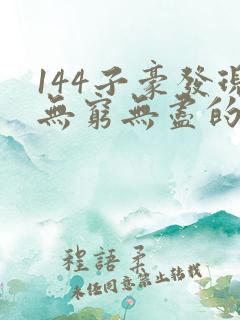 144子豪發現
無窮無盡的
程語柔
未任同意禁止转载